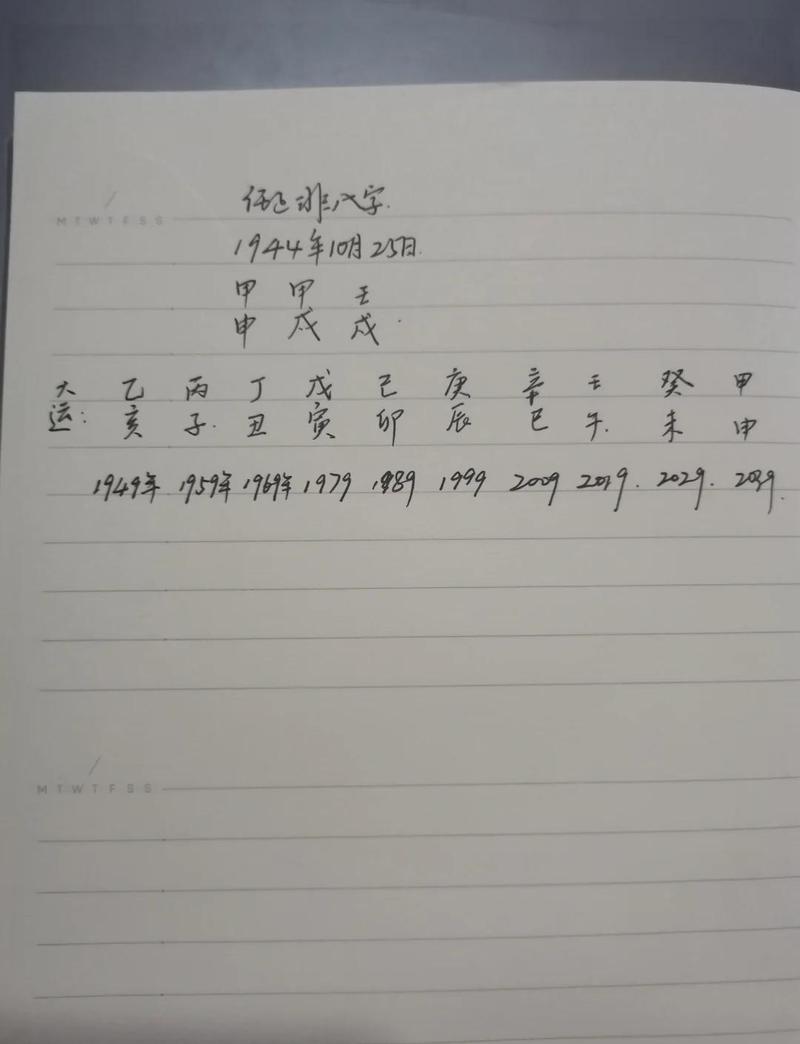 M T W T F S S
任正非八字.
1944年10月25日.
甲 甲 壬
申 戌 戌.
大 乙 丙 丁 戊 己 庚 辛 壬 癸 甲
运: 亥 子. 丑 寅 卯 辰 巳 午. 未 申
1949年 1959年 1969年 1979 1989 1999 2009 2019. 2029. 2039.
M T W T F S S